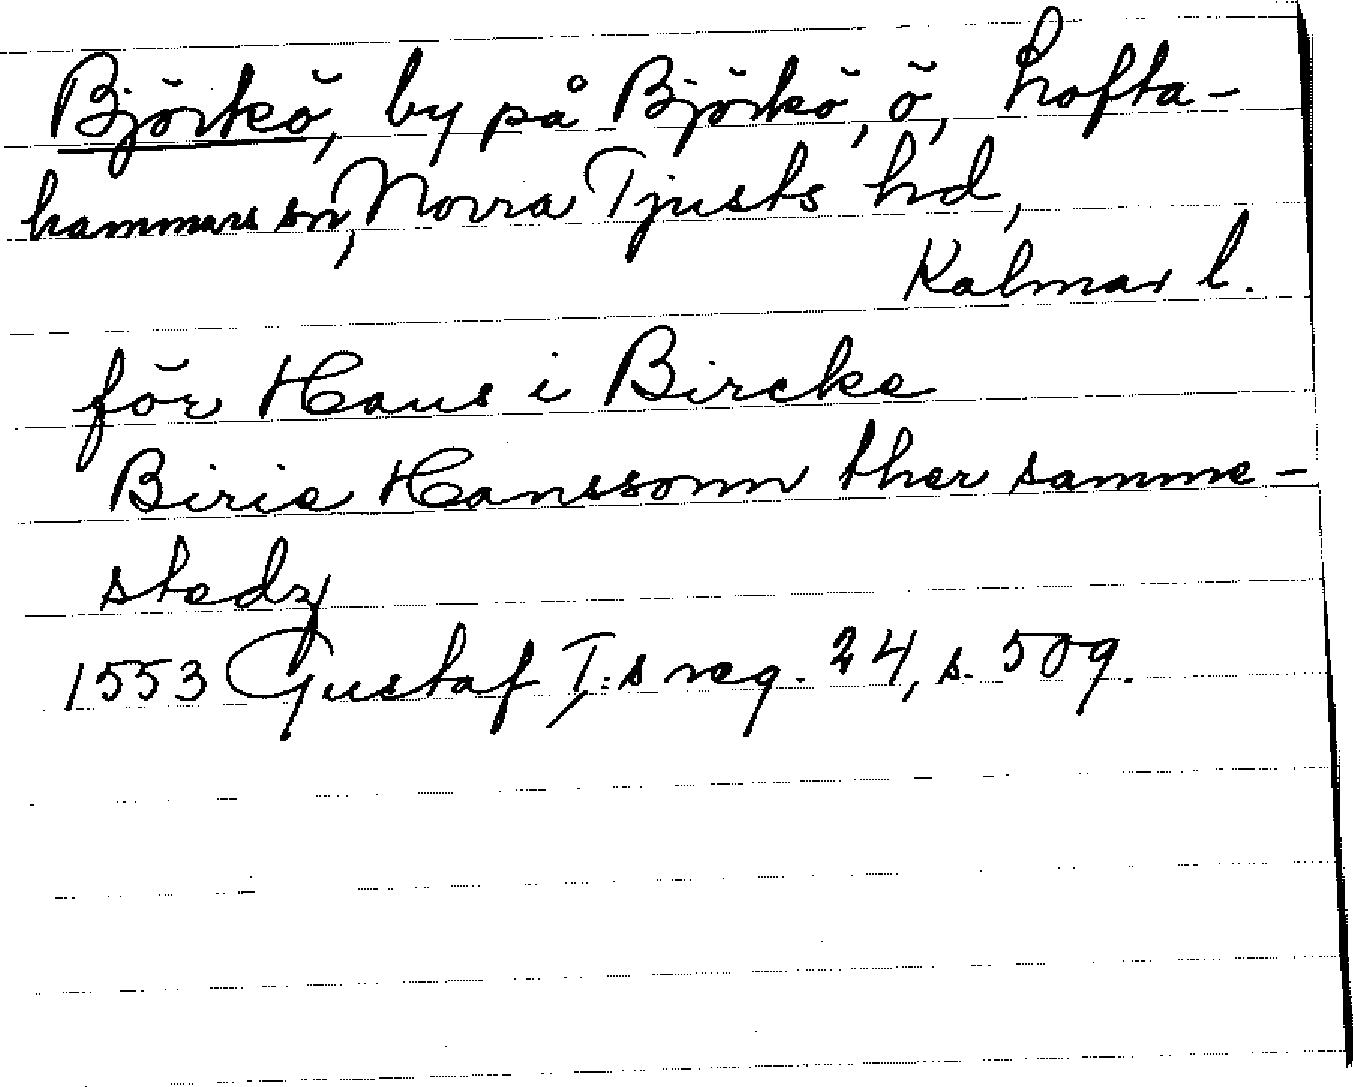 Björkö, by på Björkö, ö, Lofta-
hammars sn, Norra Tjusts hd,
Kalmar l.
för Hans i Bircke
Birie Hanssonn ther samme-
stedz
1553 Gustaf I:s reg. 24, s. 509.